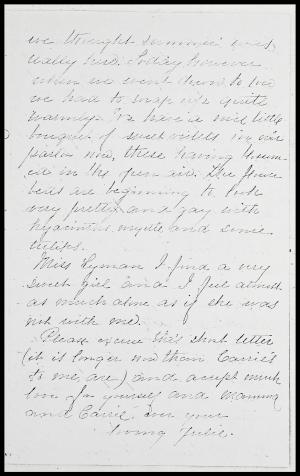 we thought summer was
really here. Today however
when we went down to tea
we had to wrap up quite
warmly. We have a nice little
bouquet of sweet violets in our
parlor now, these having bloom-
ed in the open air. The flower
beds are beginning to look
very pretty and gay with
hyacinths, myrtle and some
tulips.
Miss Lyman I find a very
sweet girl and I feel almost
as much alone as if she was
not with me.
Please excuse this short letter
(it is longer now than Carrie's
to me, are) and accept much
love for yourself and Mammy
and Carrie. Ever your
loving Julie.